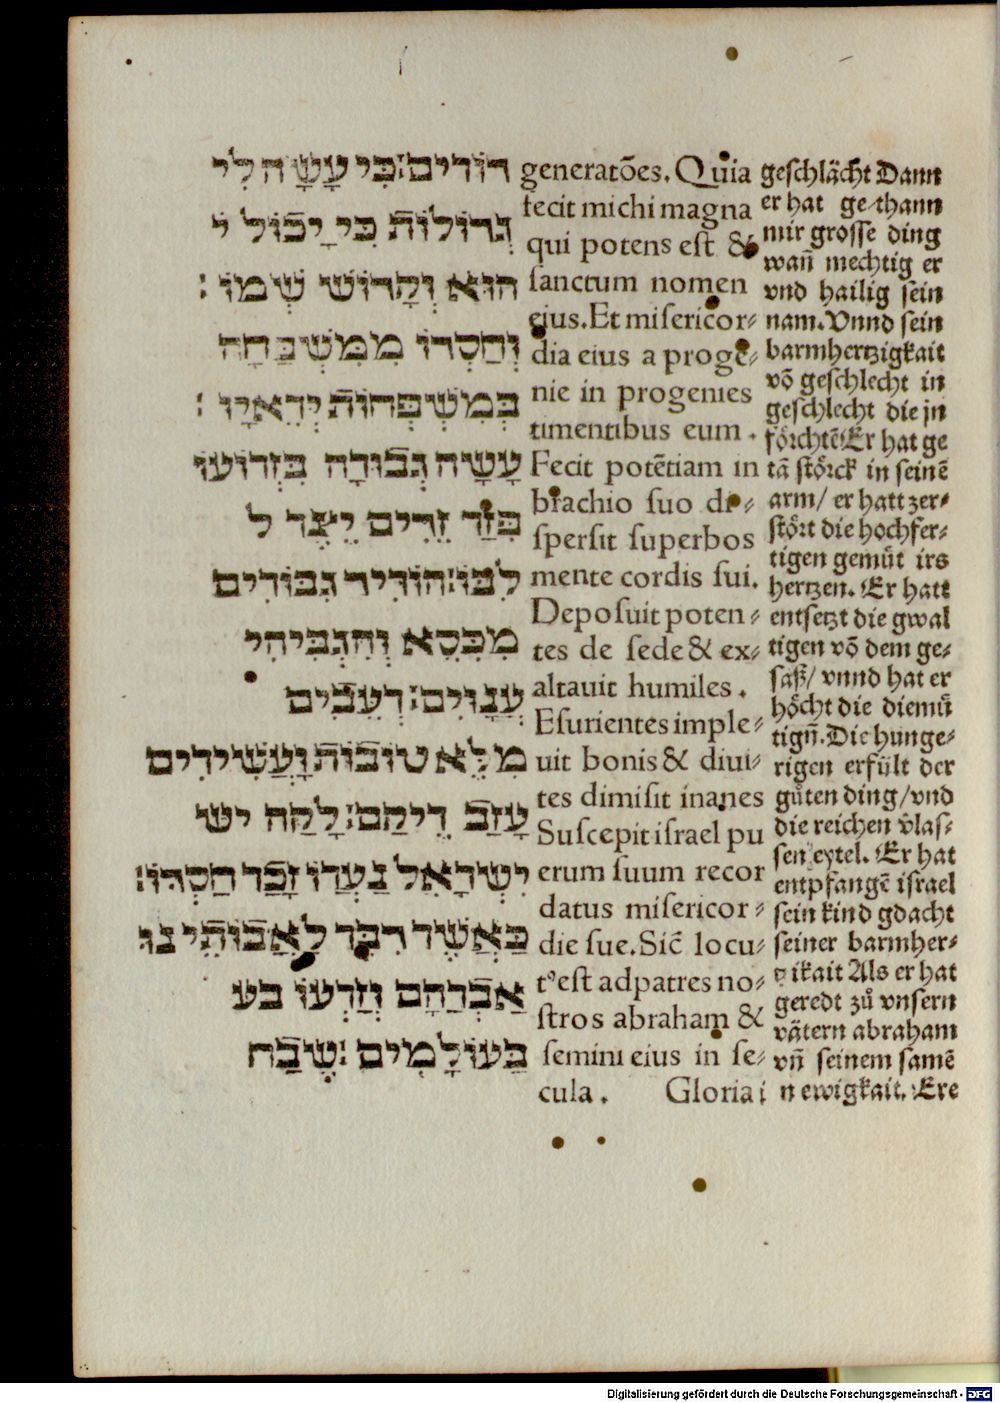 דּוֹרִים׃כִּי עָשָׂה לִי
גְּדוֹלוֹת כִּי יָכוֹל י
הוּא וְקָדוֹשׁ שְׁמוֹ׃
וְחַסְדּוֹ מִמִּשְׁפָּחָה
בְּמִשְׁפְּחוֹת יְרֵאָיו׃
עָשָׂה גְּבוּרָה בִּזְרוֹעוֹ
פִּזַּר זֵרִים יֵצֶר ל
לִבּוֹ׃הוֹרִיד גִּבּוֹרִים
מִכִּסֵא וְהִגְבִּיהִי
עֲנָוִים׃רְעֵבִים
מִלֵּא טוֹבוֹת וַעֲשִׁירִים
עָזַב רֵיקַם׃לָקַח יש
יִשְׂרָאֵל נַעֲרוֹ זָכַר חַסְדּוֹ׃
כַּאֲשֶׁר דִּבֶּר לַאֲבוֹתֵינוּ
אַבְרָהָם וְזַרְעוֹ בע
בַּעוֹלָמִים׃שֶׁבַח
generatões. Quia
fecit michi magna
qui potens est &
sanctum nomen
eius. Et misericor-
dia eius a proge-
nie in progenies
timentibus eum.
Fecit potẽtiam in
brachio suo di-
spersit superbos
mente cordis sui.
Deposuit poten-
tes de sede & ex-
altauit humiles.
Esurientes imple-
uit bonis & diui-
tes dimisit inanes
Suscepit israel pu
erum suum recor
datus misericor-
die sue. Sic̃ locu-
tꝰest ad patres no-
stros abraham &
semini eius in se-
cula. Gloria i
geschlächt Dann
er hat ge-thann
mir grosse ding
wañ mechtig er
vnd hailig sein
nam. Vnnd sein
barmhertzigkait
võ geschlecht in
geschlecht die jn
förchtẽ Er hat ge
tã störck in seinẽ
arm/ er hatt zer-
stört die hochfer-
tigen gemüt irs
hertzen. Er hatt
entsetzt die gwal
tigen võ dem ge-
säß/ vnnd hat er
höcht die diemü
tigñ. Die hunge-
rigen erfült der
gůten ding/vnd
die reichen v̂las-
sen eytel. Er hat
entpfangẽ israel
sein kind gdacht
seiner barmher-
tzikait Als er hat
geredt zů vnsern
vätern abraham
vñ seinem samẽ
n ewigkait. Ere
Digitalisierung gefördert durch die Deutsche Forschungsgemeinschaft - DFG